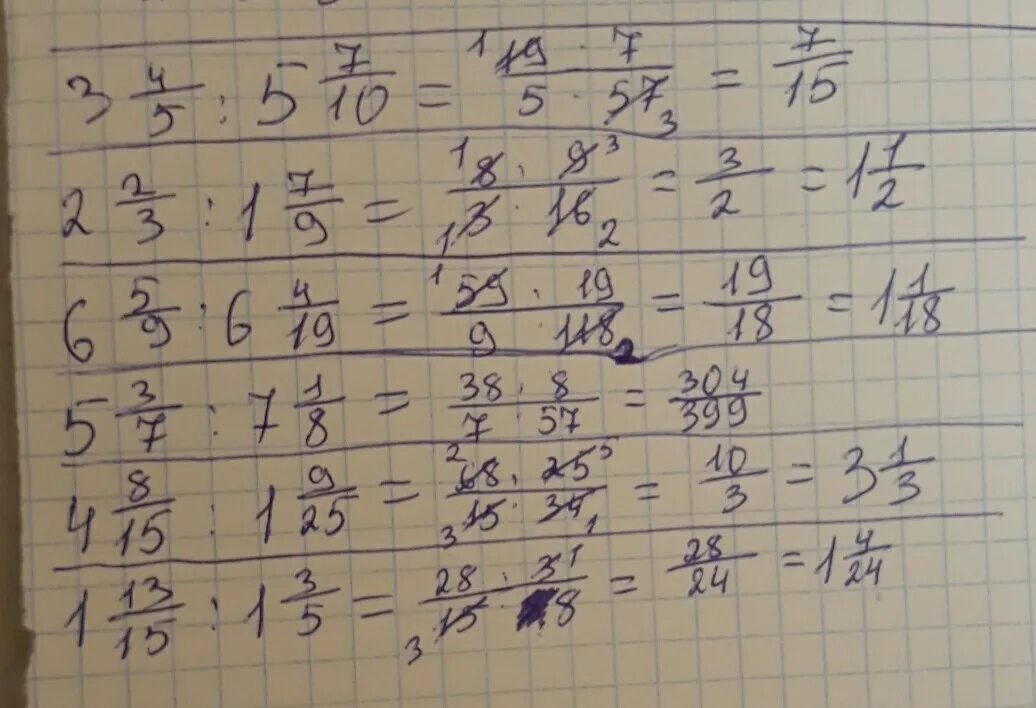 3 4/5 : 5 7/10 = 19 · 7 / 5 · 57 = 7/15
2 2/3 : 1 7/9 = 8 · 9 / 3 · 16 = 3/2 = 1 1/2
6 5/9 : 6 4/19 = 59 · 19 / 9 · 118 = 19/18 = 1 1/18
5 3/7 : 7 1/8 = 38 · 8 / 7 · 57 = 304/399
4 8/15 : 1 9/25 = 68 · 25 / 15 · 34 = 10/3 = 3 1/3
1 13/15 : 1 3/5 = 28 · 3 / 15 · 8 = 28/24 = 1 4/24